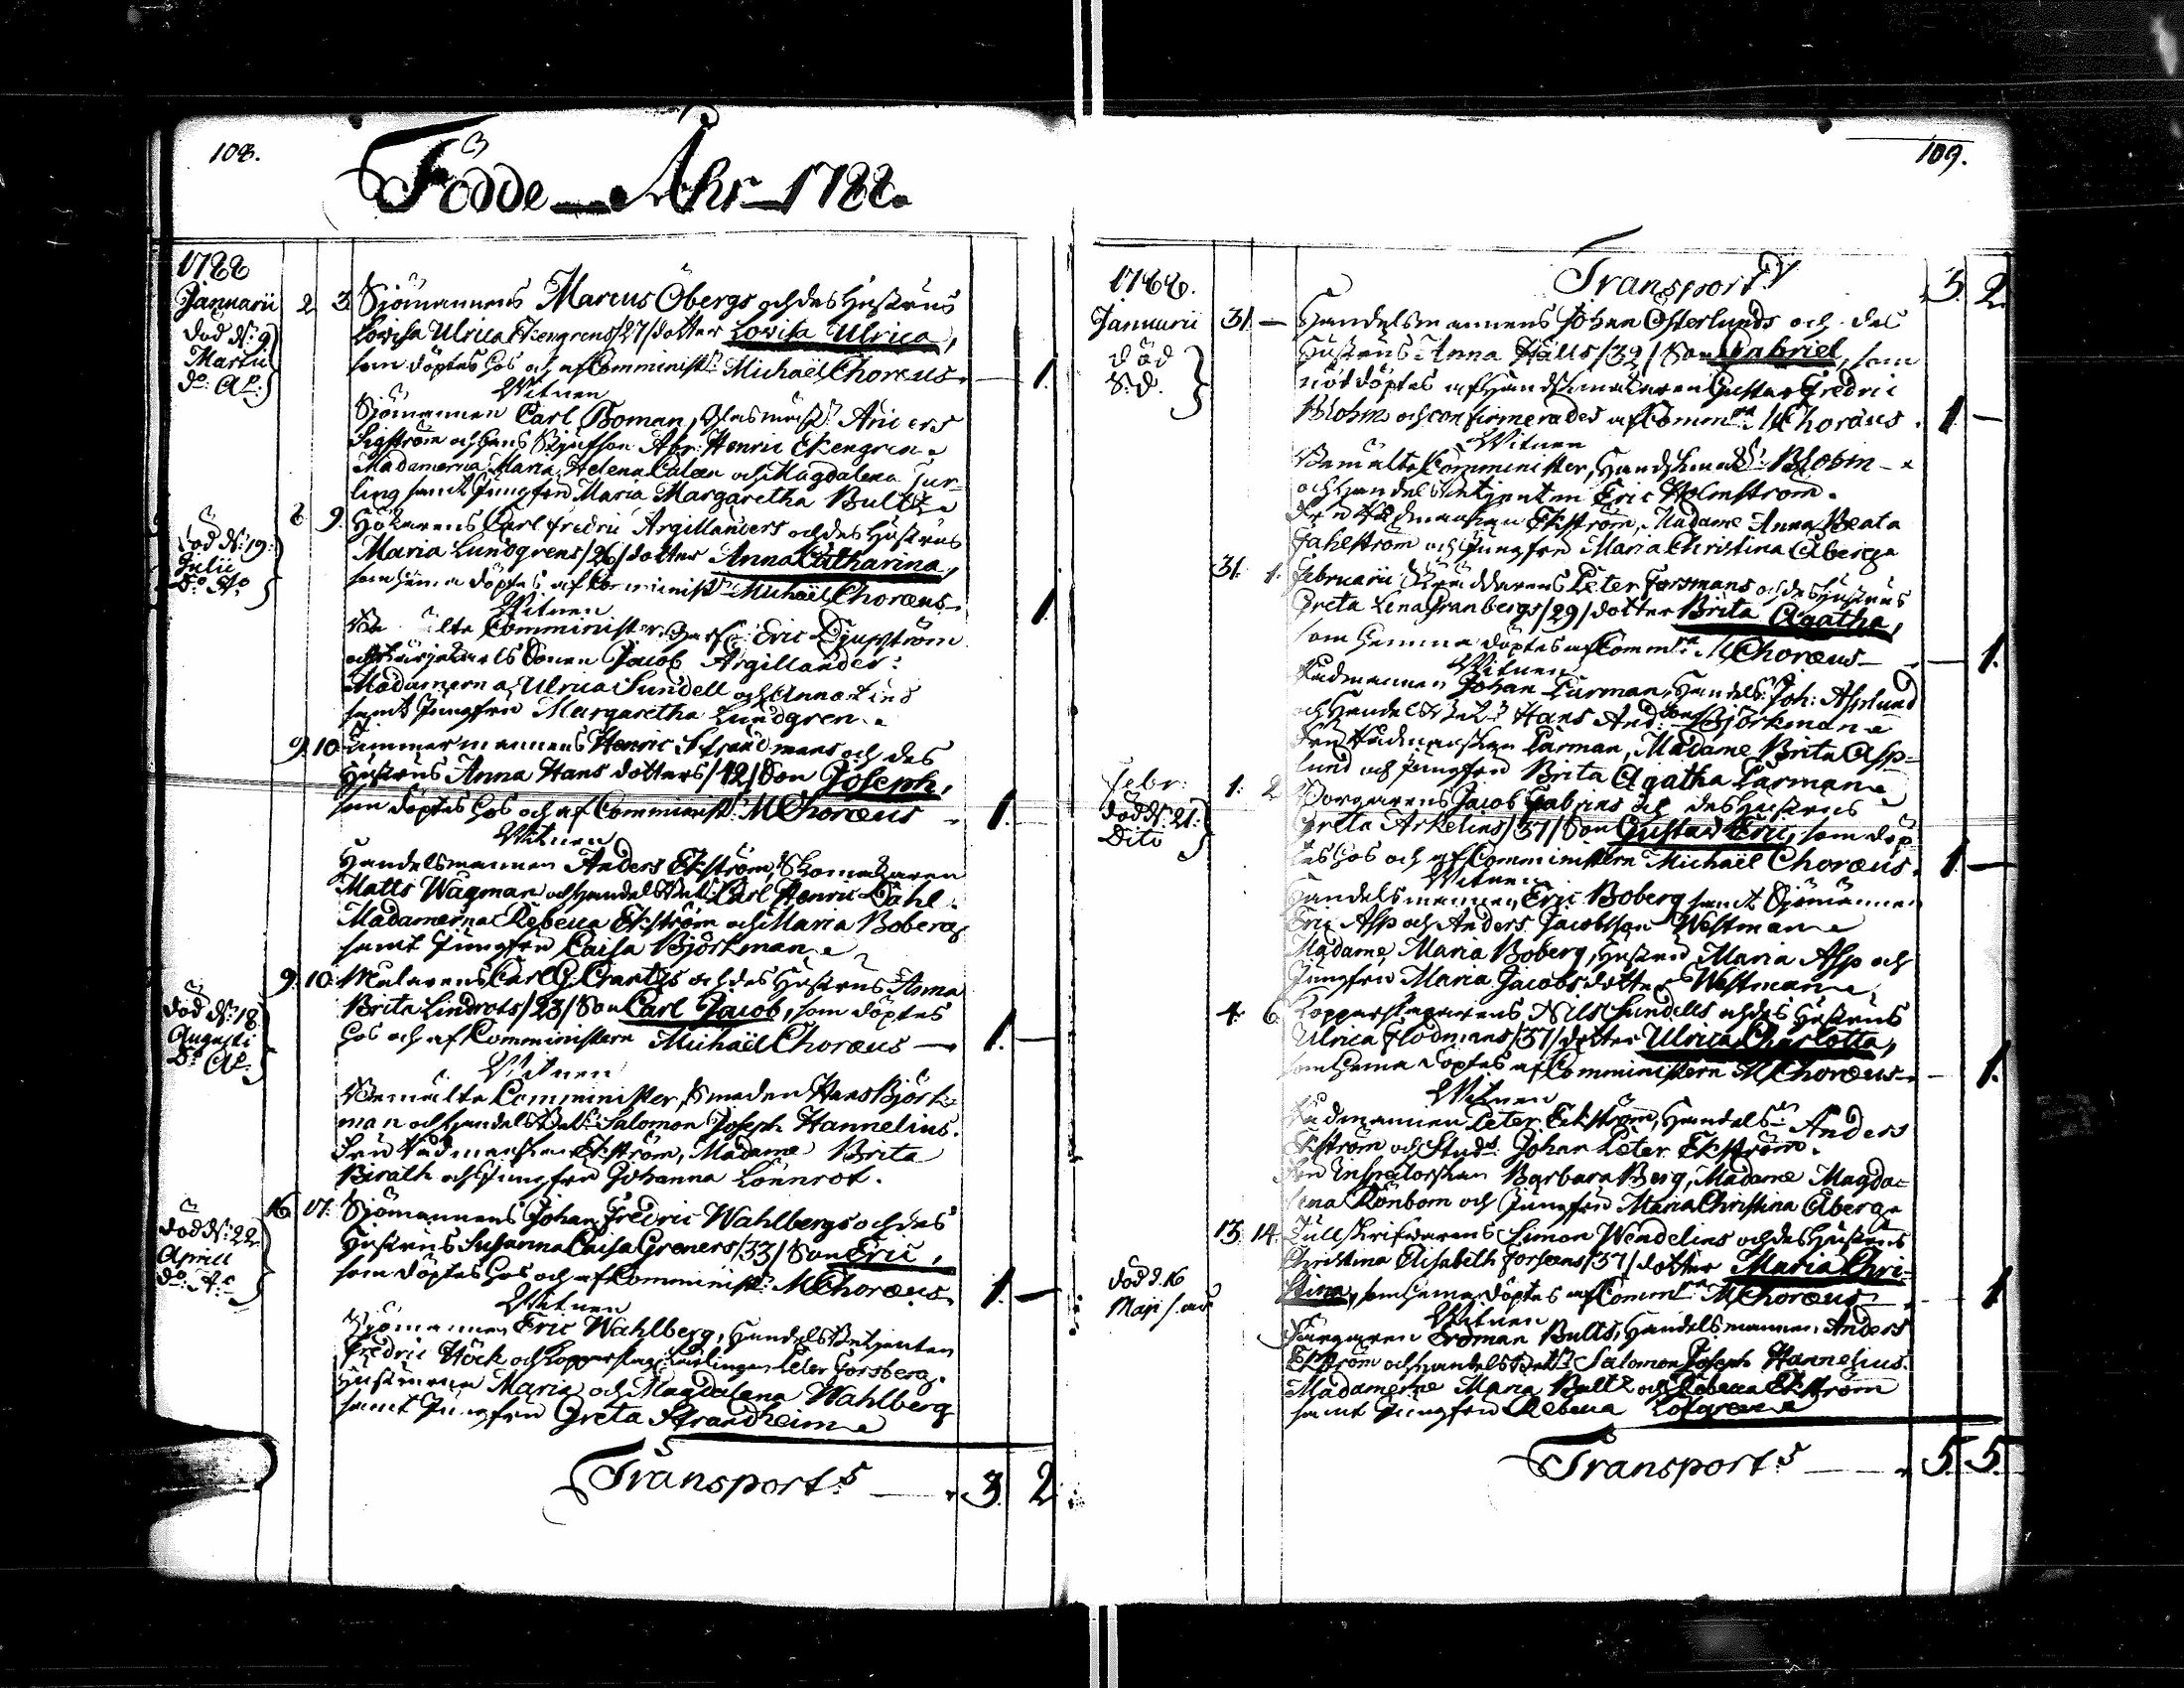 108.
Födde Åhr 1788.
1788
Januarii
död d: 9
Martii
d:o A:o
2 3 Sjömannens Marcus Öbergs och des Hustrus
Lovisa Ulrica Ekengrens /27/ dotter Lovisa Ulrica,
som döptes hos och af Comminist: Michaël Choræus 1.
Witnen
Sjömannen Carl Boman, Anders
Sigström och hans Abr: Henric Ekengren
Madamerna Maria Helena och Magdalena Jur-
ling samt Jungfru Maria Margaretha Bultz
död d: 19
Julii
d:o A:o
8 9. Hökarens Carl Fredric Argillanders och des Hustrus
Maria Lundgrens /26/ dotter Anna Catharina,
som hema döptes af Comminist: Michaël Choræus 1.
Witnen
Comminister, Eric Djupström
och Jacob Argillander:
Madamerna Ulrica Sundell och Anna
samt Jungfru Margaretha Lundgren
9. 10. Timmermannens Henric Strandmans och des
Hustrus Anna Hans dotters /42/ Son Joseph,
som döptes hos och af Comminist: M Choræus 1.
Witnen
Handelsmannen Anders Ekström, Skomakaren
Matts Wågman och Handels Bet: Carl Henric Dahl.
Madamerna Rebecca Ekström och Maria Boberg
samt Jungfru Caisa Björkman
död d: 18
Augusti
D:o A:o
9. 10. Malarens Carl G. Crantz's och des Hustrus Anna
Brita Lindrots /28/ Son Carl Jacob, som döptes
hos och af Comministern Michaël Choræus 1. —
Witnen
Bemälte Comminister, Smeden Hans Björk-
man och Handels Bet: Salomon Joseph Hannelius.
Fru Rådmanskan Ekström, Madame Brita
Birath och Jungfru Johanna Lönnrot.
död d: 22
Aprill
d:o A:o
16. 17. Sjömannens Johan Fredric Wahlbergs och des
Hustrus Susanna Caisa Greners /33/ Son Eric,
som döptes hos och af Comminist: M Choræus 1. —
Witnen
Sjömannen Eric Wahlberg, Handels Betjenten
Fredric Höck och Kopparslag: Lärlingen Peter Forsberg.
Hustrurna Maria och Magdalena Wahlberg
samt Jungfru Greta Strandheim
Transport: 3. 2
109.
Transport 3. 2.
1788.
Januarii
död
S. d.
31. — Handelsmannens Johan Österlunds och des
Hustrus Anna Hälls /32/ Son Gabriel, som
nöddöptes af Handskmakaren Gustav Fredric
Blohm och confirmerades af Comm: M Choræus. 1. —
Witnen
Bemälte Comminister, Handskmak: Blohm
och Handels Betjenten Eric Holmström.
Fru Rådmanskan Ekström, Madame Anna Beata
Fahlström och Jungfru Maria Christina Åberg
31. 1. Februarii Skräddarens Peter Forsmans och des Hustrus
Greta Lena Granbergs /29/ dotter Brita Agatha,
som hemma döptes af Comm: M Choræus — 1.
Witnen
Rådmannen Johan Parman, Handels: Joh: Asplund
och Handels Bet: Hans And: son Björkman
Fru Rådmanskan Parman, Madame Brita Asp-
lund och Jungfru Brita Agatha Parman
Febr:
död d: 21.
Dito
1. 2. Borgarens Jacob Fabrins och des Hustrus
Greta Arkelins /37/ Son Gustav Eric, som döp-
tes hos och af Comministern Michaël Choræus. 1. —
Witnen
Handelsmannen Eric Boberg samt Sjömännen
Eric Asp och Anders Jacobsson Westman
Madame Maria Boberg, Hustru Maria Asp och
Jungfru Maria Jacobs dotter Westman
4. 6. Kopparslagarens Nils Sundells och des Hustrus
Ulrica Flodmans /37/ dotter Ulrica Charlotta,
som hema döptes af Comministern M Choræus — 1.
Witnen
Rådmannen Peter Ekström, Handels: Anders
Ekström och Stud: Johan Peter Ekström.
Fru Inspectorskan Barbara Berg, Madame Magda-
lena Rönbom och Jungfru Maria Christina Åberg
död d. 16
Maji s. år
13. 14. Tullskrifvarens Simon Wendelins och des Hustrus
Christina Elisabeth Forseens /37/ dotter Maria Chri-
stina, som hema döptes af Comm: M Choræus — 1
Witnen
Färgaren Erdman Bults, Handelsmannen Anders
Ekström och Handels Bet: Salomon Joseph Hannelius.
Madamerne Maria Bultz och Rebecca Ekström
samt Jungfru Rebecca Löfgren
Transport: 5. 5.